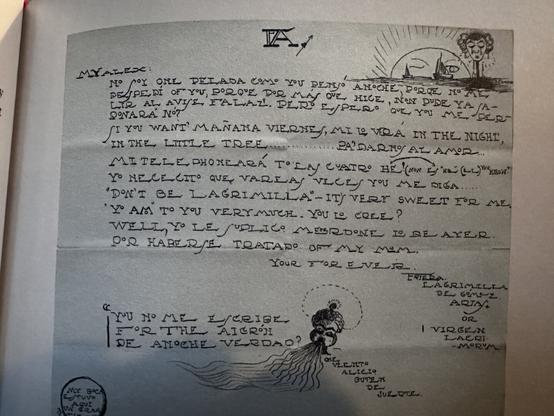 MY ALEX:
NO SOY ONE PELADA COMO YOU PENSÓ ANOCHE, PORQE NO ME
DESPEDÍ OF YOU, PORQUE POR MÁS QUE HICE, NON PUDE YA SA-
LIR AL AVISE FALAZ. PERO ESPERO QUE YOU ME PER-
DONARÁ NO?
SI YOU WANT MAÑANA VIERNES, MI LO VRÁ IN THE NIGHT,
IN THE LITTLE TREE............ PA' DARNOS AL AMOR...
MI TELEPHONEARÁ TO LAS CUATRO
YO NECECITO QUE VARIAS VECES YOU ME DIGA.....
"DON'T BE LAGRIMILLA" - IT'S VERY SWEET FOR ME,
YO AM TO YOU VERY MUCH. YOU LO CREE?
WELL, YO LE SUPLICO ME PRDONE LO DE AYER.
POR HABERSE TRATADO OF MY MOM.
YOUR FOR EVER.
LAGRIMILLA
DE GÓMEZ
ARIAS.
OR
VIRGEN
LACRI-
MORUM
"YOU NO ME ESCRIBE
FOR THE AIGRÓN
DE ANOCHE VERDAD?
QUE
VIENTO
ALICIO
DE
SUERTE.
AQUÍ
UN GRAN